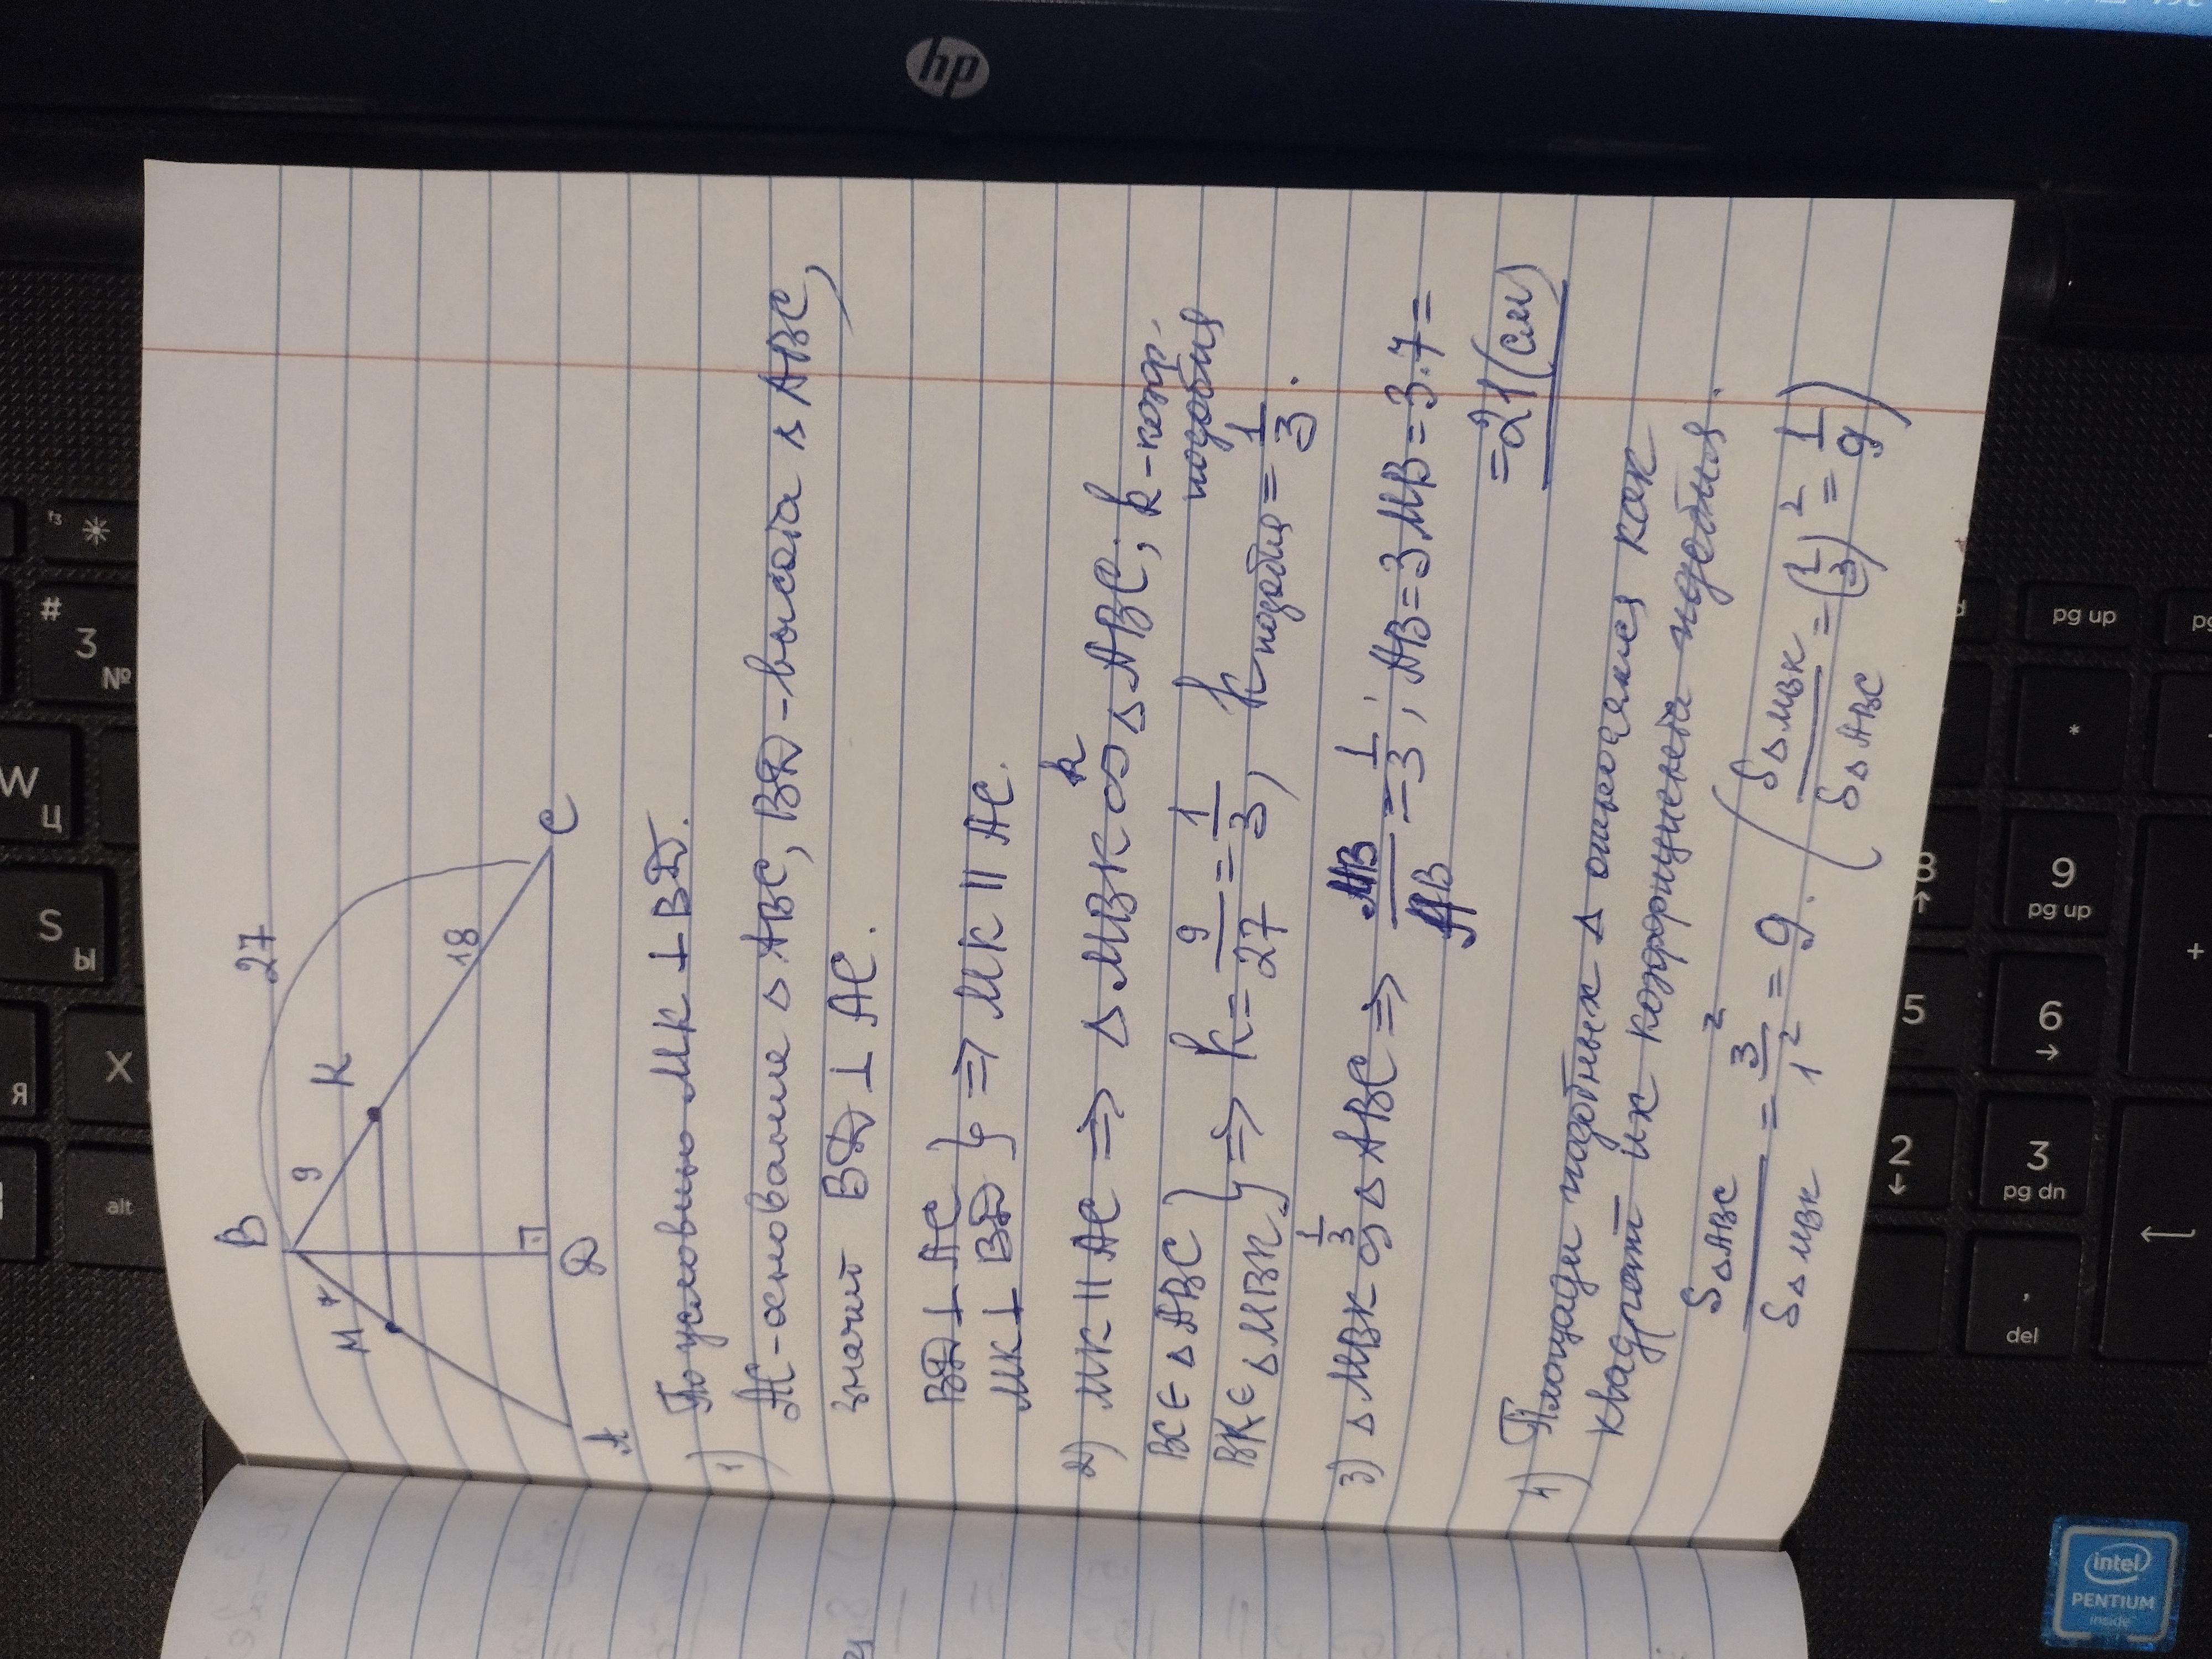 B
27
9
K
7
M
18
A
D
C
По условию MK ⊥ BD.
1) AC - основание Δ ABC, BD - высота Δ ABC,
значит BD ⊥ AC.
BD ⊥ AC
MK ⊥ BD } ⇒ MK || AC.
2) MK || AC ⇒ Δ MBK ∽ᵏ Δ ABC, k - коэф.
подобия
BC ∈ Δ ABC
BK ∈ Δ MBK } ⇒ k = 9/27 = 1/3, k подобия = 1/3.
3) Δ MBK ∽ 1/3 Δ ABC ⇒ MB/AB = 1/3; AB = 3MB = 3·7 =
= 21 (см)
4) Площади подобных Δ относятся как
квадрат их коэффициента подобия.
SΔABC/SΔMBK = 3²/1² = 9. (SΔMBK/SΔABC = (1/3)² = 1/9)
hp
*
#
3
№
W
Ц
S
Ы
Я
X
alt
8
9
pg up
5
6
2
3
pg dn
+
*
pg up
del
intel
PENTIUM
inside